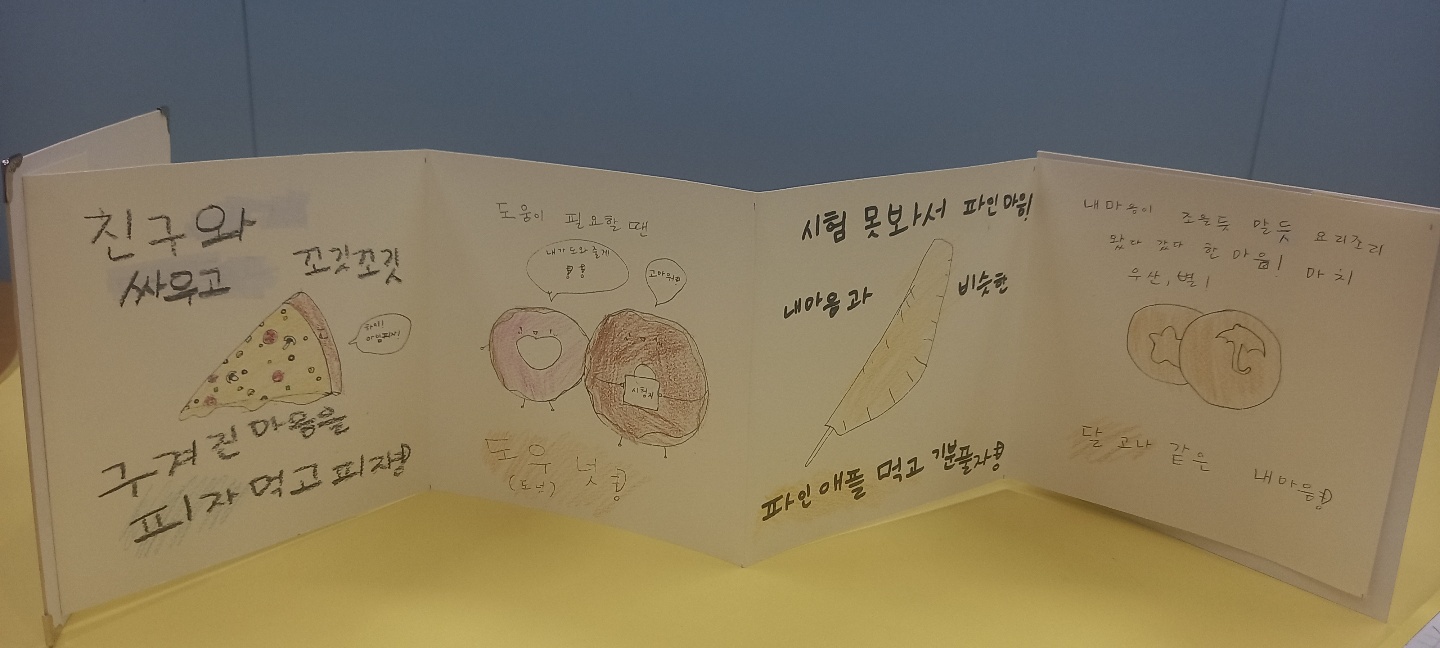 친구와
싸우고
꼬깃꼬깃
하이!
구겨진 마음을
피자 먹고 피자!
도움이 필요할 땐
내가 도와줄게
!!
고마워!
시험지
도우넛!
(도넛)
시험 못봐서 파인마음!
내마음과
비슷한
파인애플 먹고 기분풀자!
내마음이 조을듯 말듯 요리조리
왔다 갔다 한 마음! 마치
우산, 별!
달고나 같은
내마음!